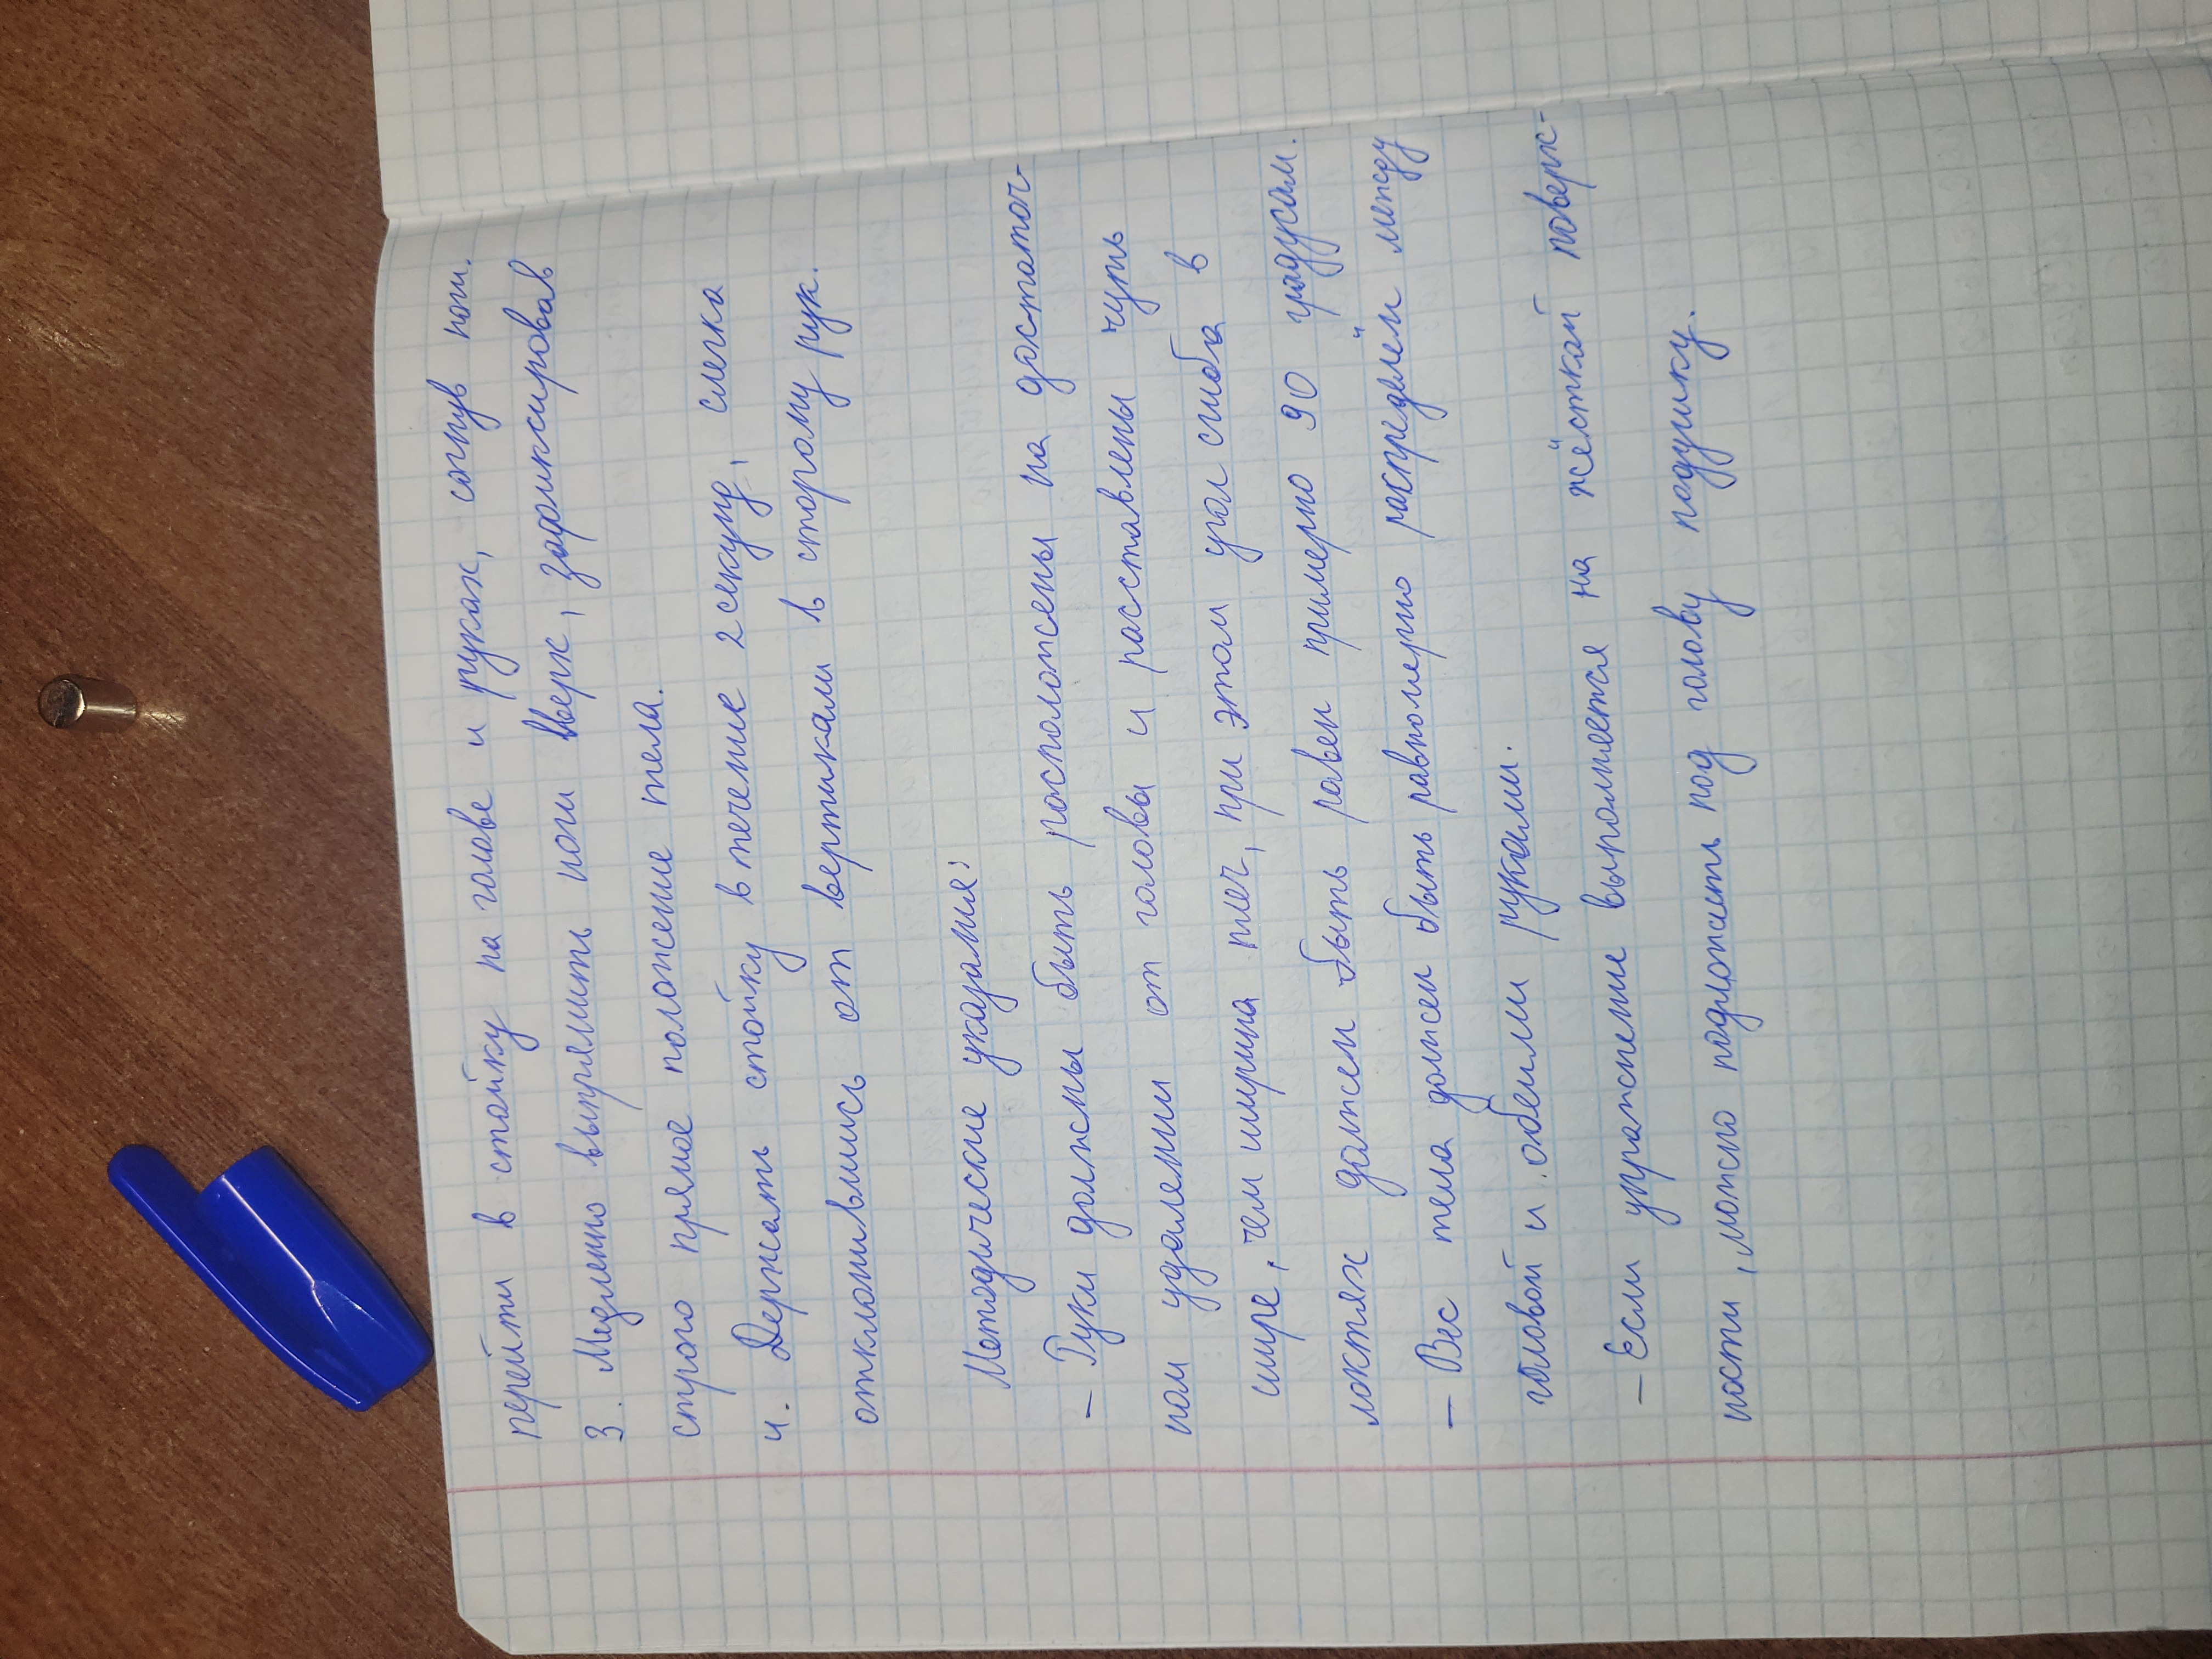 перейти в стойку на голове и руках, согнув ноги.
3. Медленно выпрямить ноги вверх, зафиксировав
строго прямое положение тела.
4. Держать стойку в течение 2 секунд, слегка
отклонившись от вертикали в сторону рук.
Методические указания:
– Руки должны быть расположены на достаточ-
ном удалении от головы и расставлены чуть
шире, чем ширина плеч, при этом угол сгиба в
локтях должен быть равен примерно 90 градусам.
– Вес тела должен быть равномерно распределён между
головой и обеими руками.
– Если упражнение выполняется на жёсткой поверх-
ности, можно подложить под голову подушку.